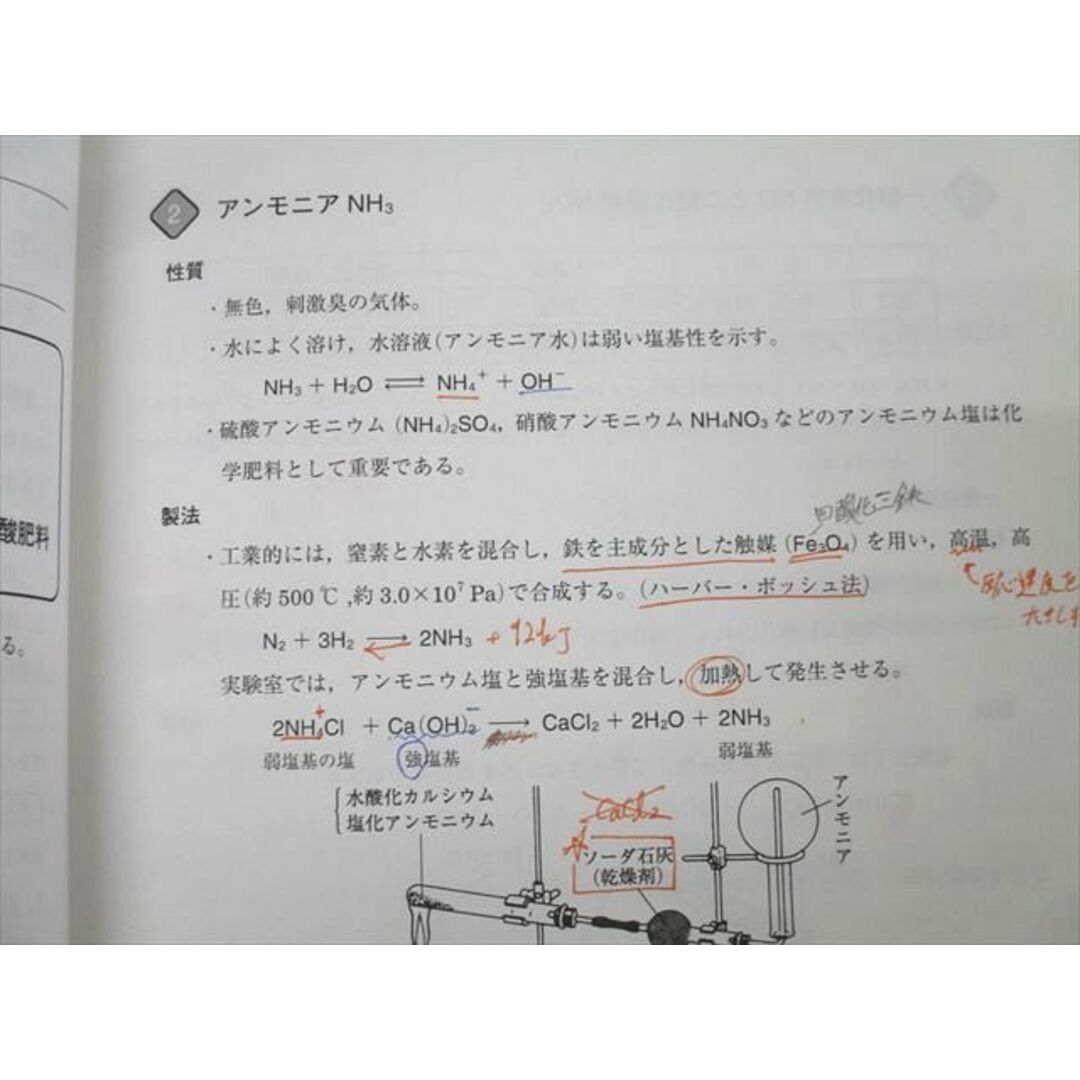 2 アンモニア NH₃
性質
・無色，刺激臭の気体。
・水によく溶け，水溶液(アンモニア水)は弱い塩基性を示す。
NH₃ + H₂O ⇄ NH₄⁺ + OH⁻
・硫酸アンモニウム (NH₄)₂SO₄，硝酸アンモニウム NH₄NO₃ などのアンモニウム塩は化
学肥料として重要である。
酸肥料
る。
製法
四酸化三鉄
・工業的には，窒素と水素を混合し，鉄を主成分とした触媒 (Fe₃O₄) を用い，高温，高
圧(約 500 ℃ ,約 3.0×10⁷ Pa)で合成する。(ハーバー・ボッシュ法)
反応速度を
大きく
N₂ + 3H₂ ⇄ 2NH₃ + 92kJ
実験室では，アンモニウム塩と強塩基を混合し，加熱して発生させる。
2NH₄⁺Cl + Ca(OH)₂⁻ ⟶ CaCl₂ + 2H₂O + 2NH₃
弱塩基の塩 強塩基 弱塩基
水酸化カルシウム
塩化アンモニウム
CaCl₂
ソーダ石灰
(乾燥剤)
アンモニア